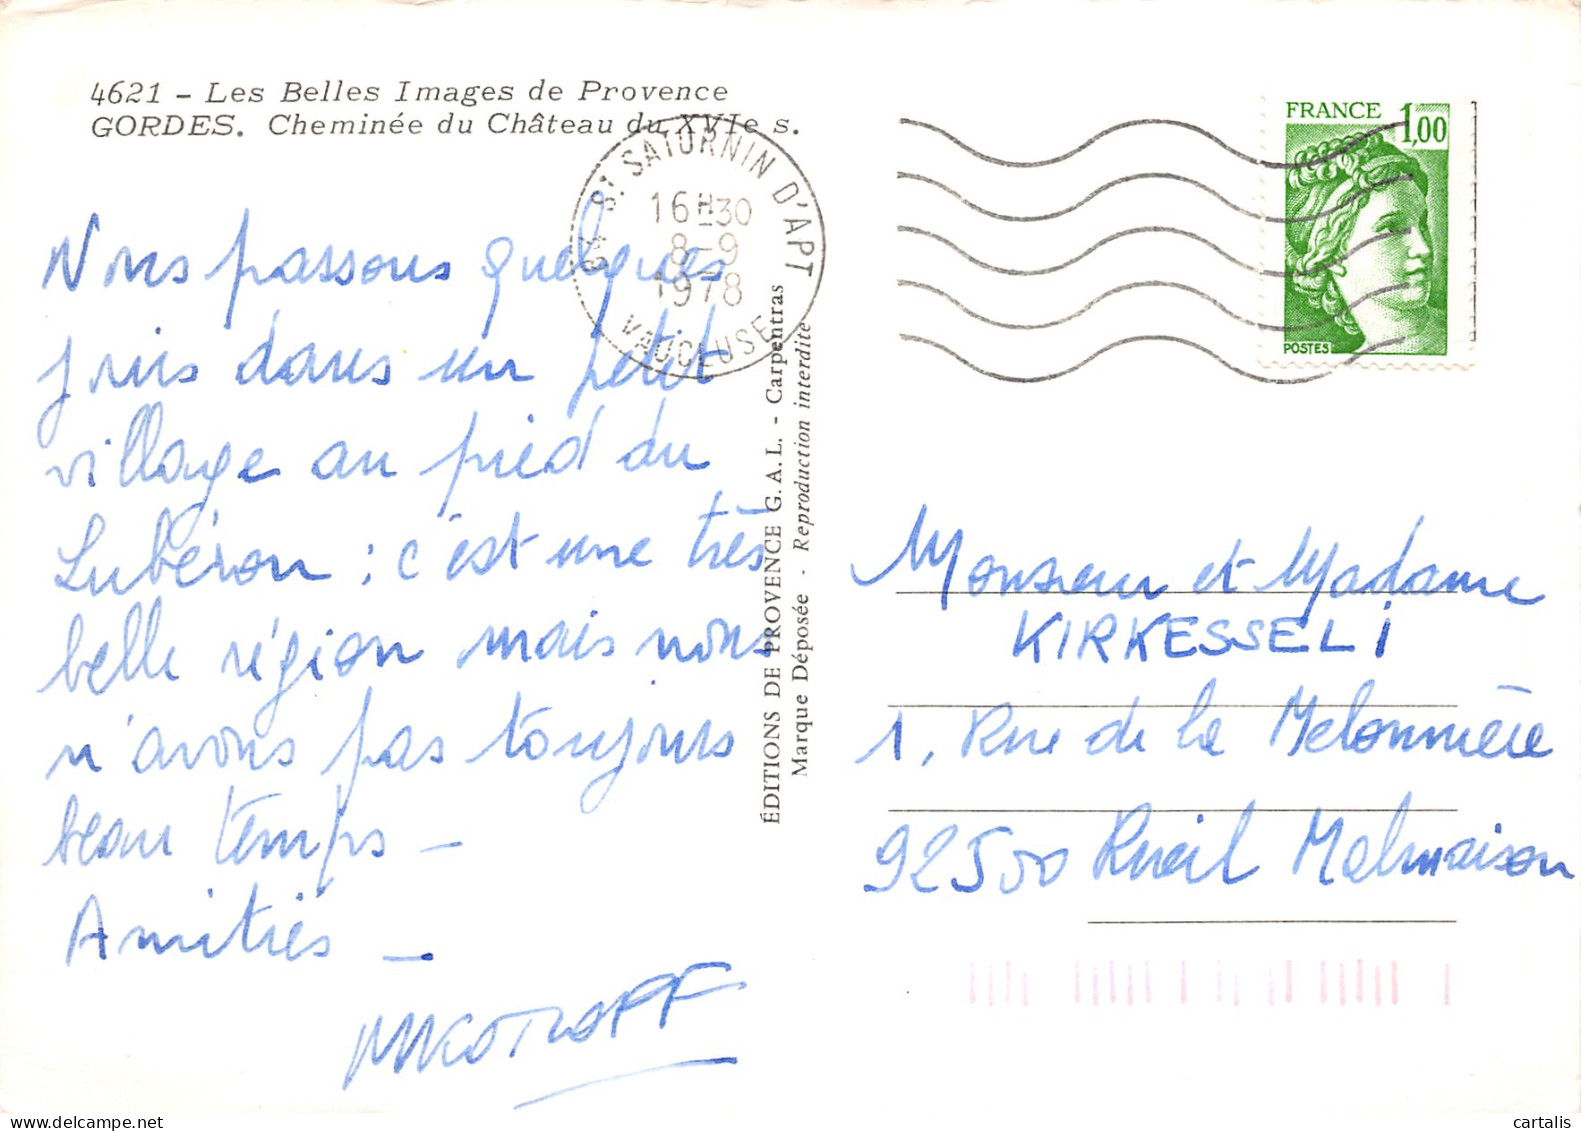 4621 - Les Belles Images de Provence
GORDES. Cheminée du Château du XVIe s.
84 ST SATURNIN D'APT
16H30
8-9
1978
VAUCLUSE
FRANCE 1,00
POSTES
Nous passons quelques
jours dans un petit
village au pied du
Lubéron ; c'est une très
belle région mais nous
n'avons pas toujours
beau temps -
Amitiés -
ÉDITIONS DE PROVENCE G.A.L. - Carpentras
Marque Déposée - Reproduction interdite
Monsieur et Madame
KIRKESSELi
1, Rue de la Melonnière
92500 Rueil Malmaison
cartalis.com